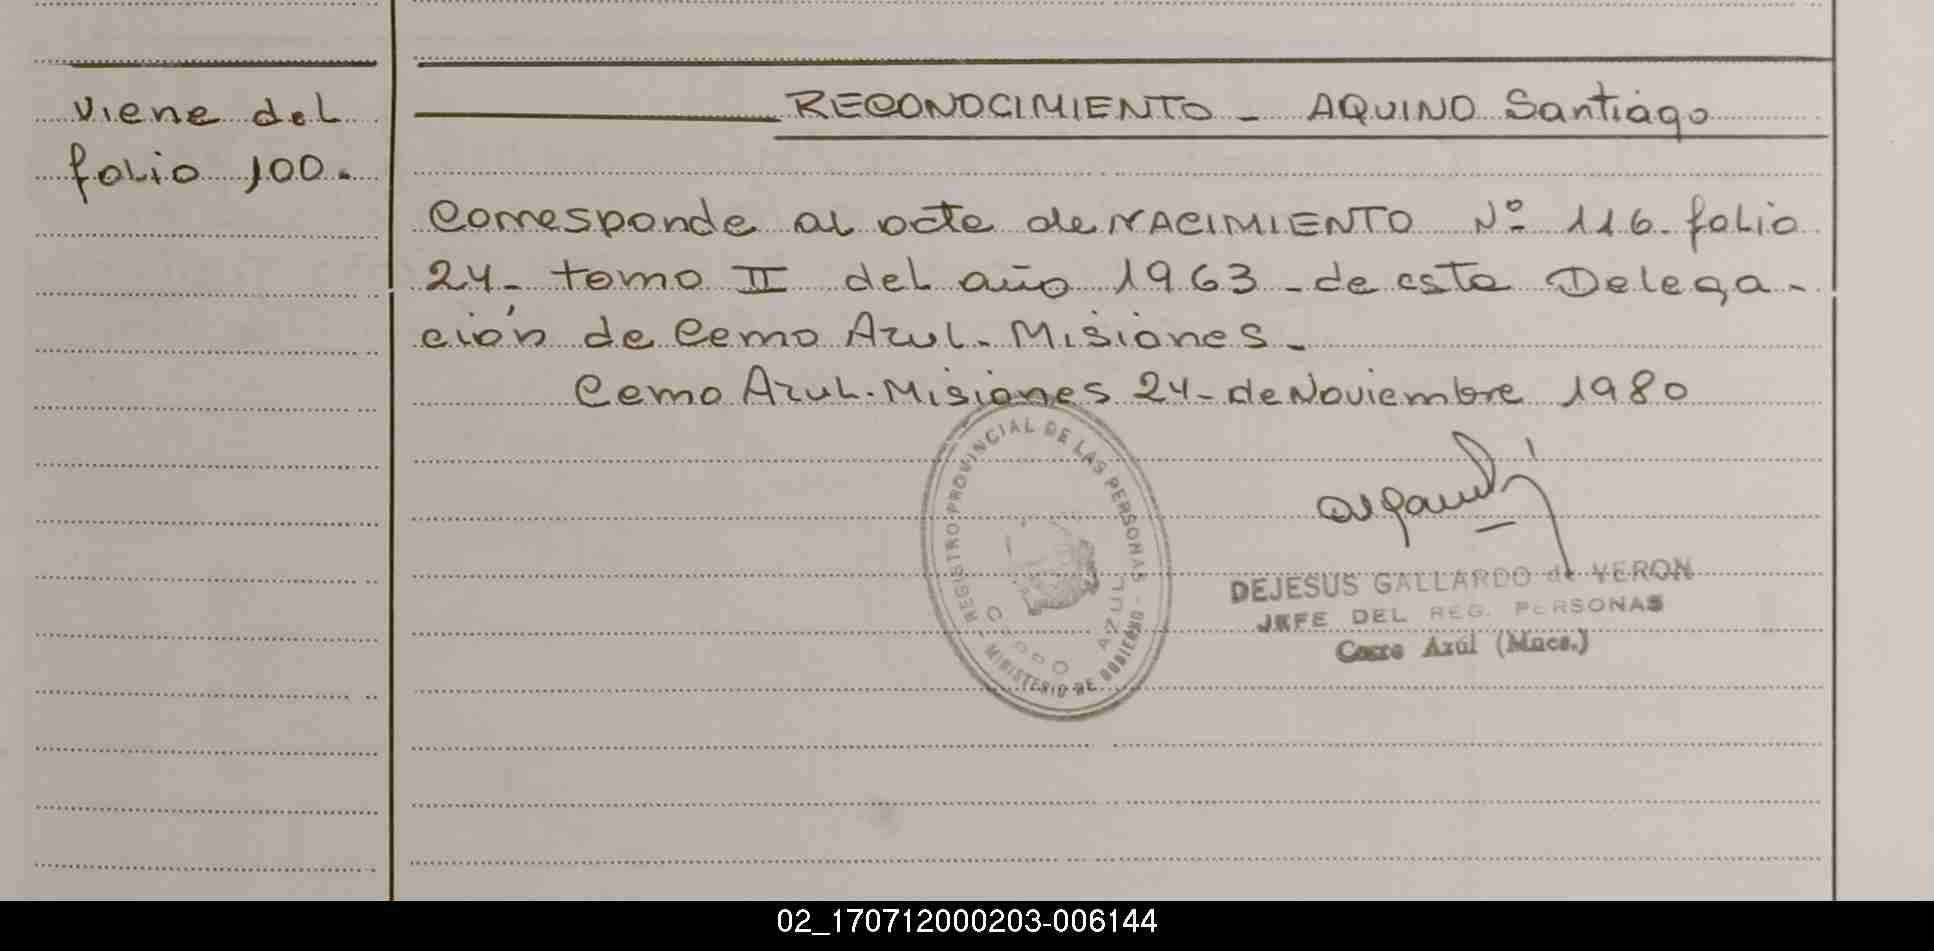 viene del
folio 100.
RECONOCIMIENTO - AQUINO Santiago
Corresponde al acta de NACIMIENTO Nº 116. folio
24- tomo II del año 1963 - de esta Delega-
ción de Cerro Azul. Misiones.
Cerro Azul. Misiones 24- de Noviembre 1980
REGISTRO PROVINCIAL DE LAS PERSONAS -
MINISTERIO DE GOBIERNO
AZUL
DEJESUS GALLARDO de VERON
JEFE DEL REG. PERSONAS
Cerro Azúl (Mnes.)
02_170712000203-006144